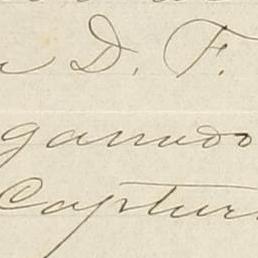 D. F.
ganado
Captur